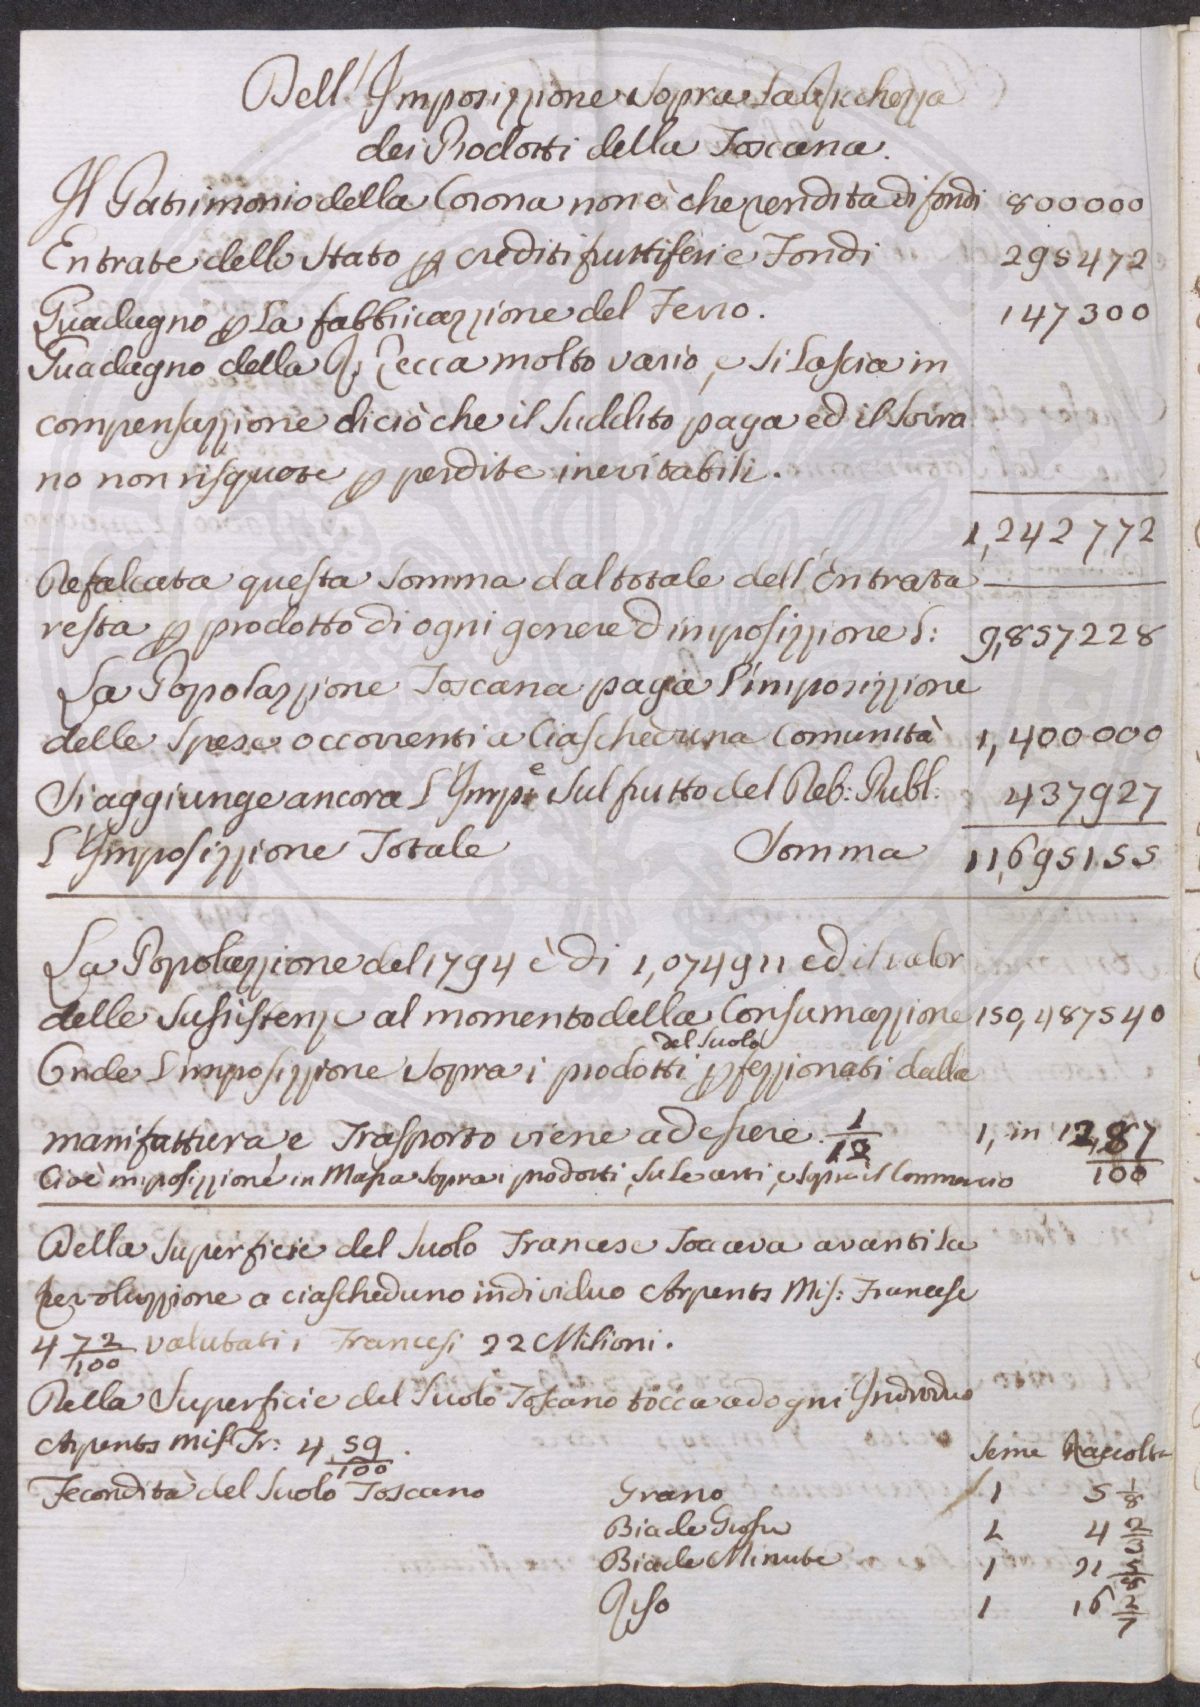 Dell'Imposizzione sopra la Ricchezza
dei Prodotti della Toscana.
Il Patrimonio della Corona non è che rendita di fondi 800000
Entrate dello Stato p crediti fruttiferi e Fondi 295472
Guadagno p la fabbricazzione del Ferro. 147300
Guadagno della R. Zecca molto vario, e si lascia in
compensazzione di ciò che il Suddito paga ed il Sovra
no non risquote p perdite inevitabili.
1,242772
Refalcata questa Somma dal totale dell'Entrata
resta p prodotto di ogni genere d'imposizzione L: 9,857228
La Popolazzione Toscana paga l'imposizzione
delle Spese occorrenti a Ciascheduna Comunità 1,400000
Si aggiunge ancora l'Imp.e sul frutto del Deb: Publ: 437927
L'Imposizzione Totale Somma 11,695155
La Popolazzione del 1794 è di 1,074911 ed il valor
delle Susistenze al momento della Consumazzione 150,487540
Onde l'imposizzione sopra i prodotti del Suolo pfezzionati dalla
manifattura, e Trasporto viene ad essere 1/12 1, in 12,87/100
Cioè imposizzione in Massa sopra i prodotti, su le arti, e sopra il Commercio
Della Superficie del Suolo Francese Toccava avanti la
Revoluzzione a ciascheduno individuo Arpents Mis: Francese
4 72/100 valutati i Francesi 22 Milioni.
Della Superficie del Suolo Toscano tocca ad ogni Individuo
Arpents mis Fr: 4 59/100.
Seme Raccolta
Fecondità del Suolo Toscano Grano 1 5 1/8
Biade Grosse 1 4 2/3
Biade Minute 1 21 5/8
Riso 1 16 2/7